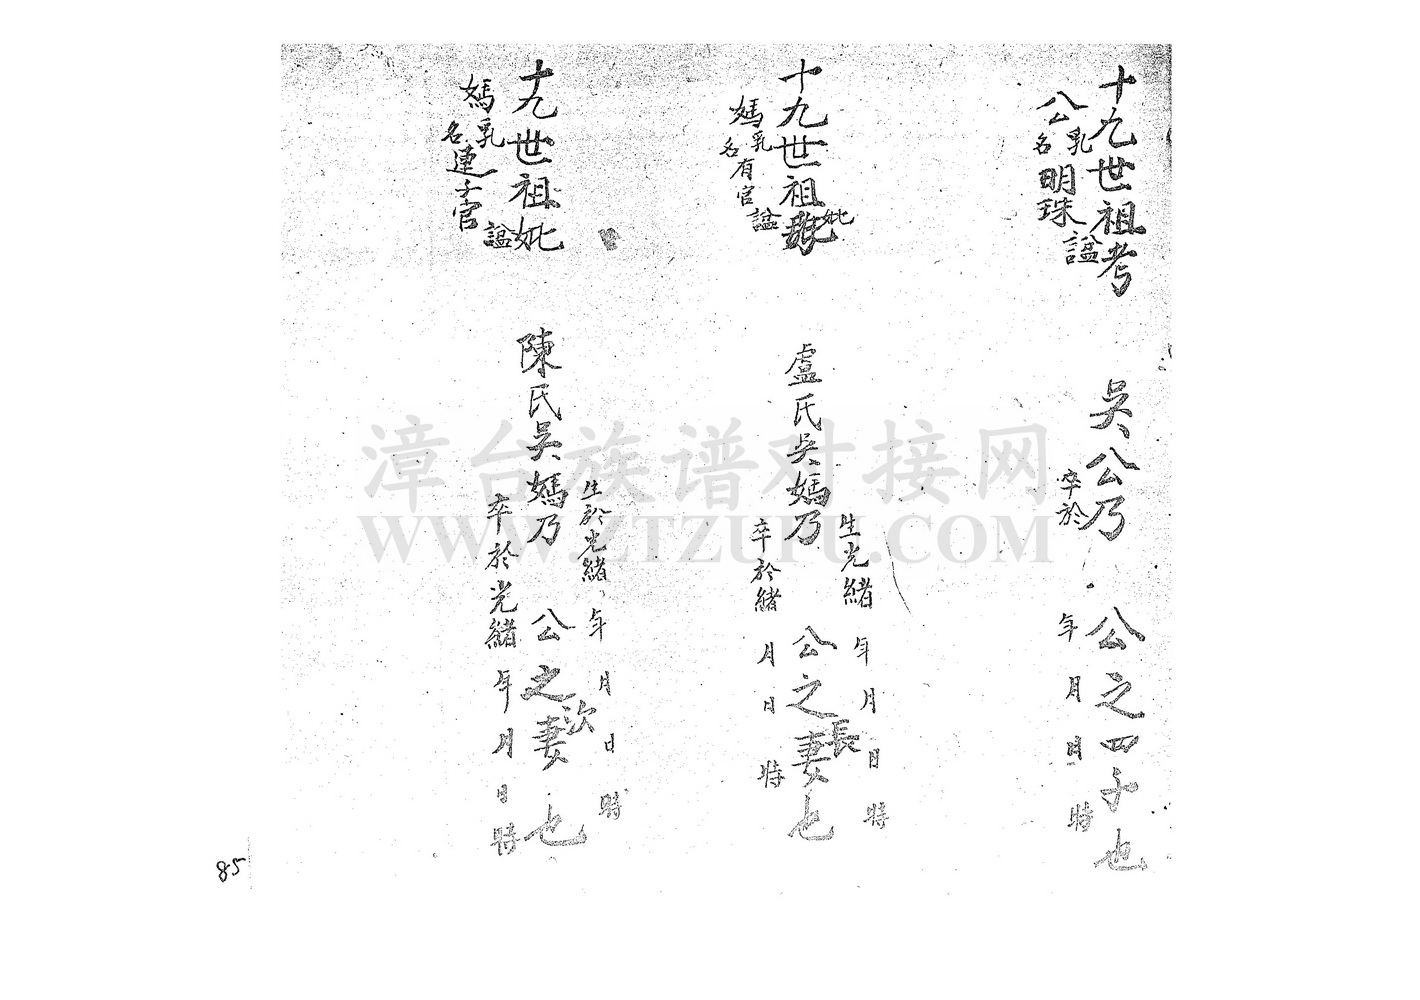 十九世祖考
公乳名明珠
諡
吳公乃 公之四子也
卒於 年 月 日 時
十九世祖妣
媽乳名有官
諡
盧氏吳媽乃 公之長妻也
生光緒 年 月 日 時
卒於緒 月 日 時
十九世祖妣
媽乳名連子官
諡
陳氏吳媽乃 公之次妻也
生於光緒 年 月 日 時
卒於光緒 年 月 日 時
85
漳台族谱对接网
WWW.ZTZUPU.COM